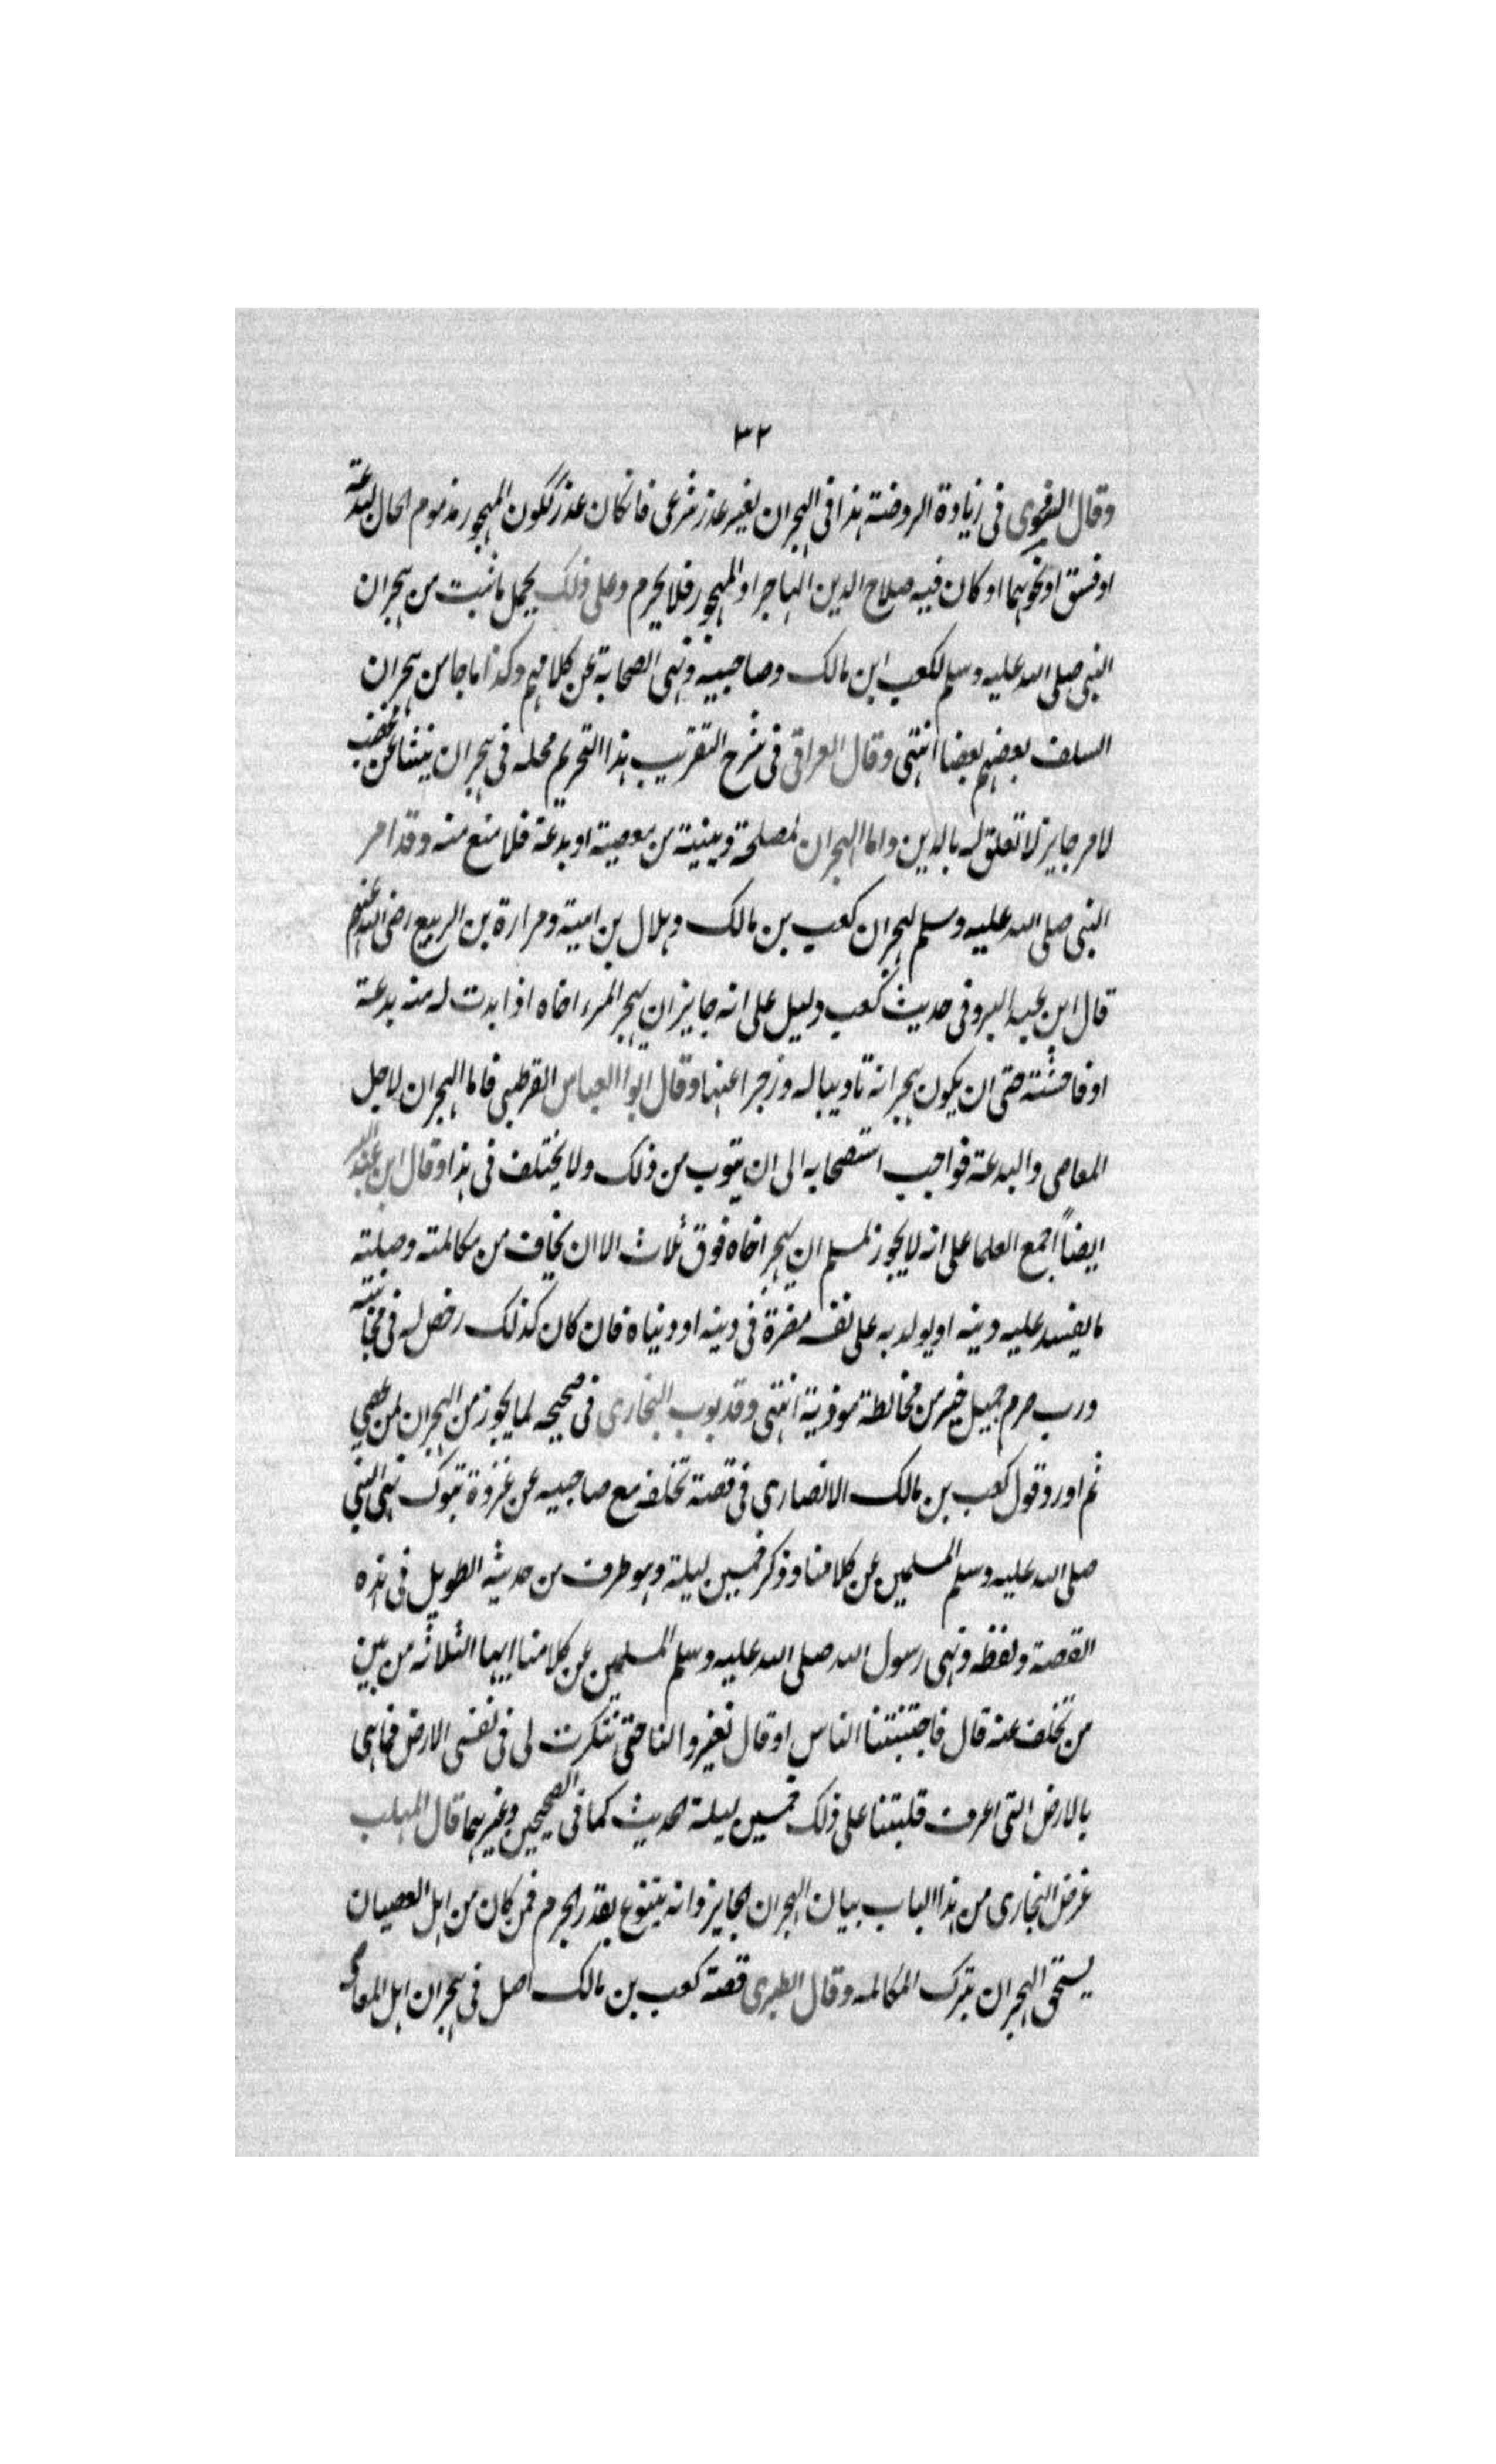 ٣٢
وقال النووي فى زيادة الروضة هذا فى الهجران لغير عذر شرعى فانكان عذر ككون المهجور مذموم الحال لبدعة
او فسق او نحوهما او كان فيه صلاح الدين الهاجر او المهجور فلا يحرم وعلى ذلك يحمل ما ثبت من هجران
النبى صلى الله عليه وسلم لكعب ابن مالك وصاحبيه ونهى الصحابة عن كلامهم وكذا ما جا من هجران
السلف بعضهم بعضا انتهى وقال العراقى فى شرح التقريب هذا التحريم محله فى هجران ينشا عن غضب
لامر جايز لا تعلق له بالدين واما الهجران لمصلحة دينية من معصية او بدعة فلا منع منه وقد امر
النبى صلى الله عليه وسلم بهجران كعب بن مالك وهلال بن امية ومرارة بن الربيع رضى الله عنهم
قال ابن عبد البر وفى حديث كعب دليل على انه جايز ان يهجر المرء اخاه اذا بدت له منه بدعة
او فاحشة حتى ان يكون هجرانه تاديبا له وزجرا عنها وقال ابو العباس القرطبى فاما الهجران لاجل
المعاصى والبدعة فواجب استصحابه الى ان يتوب من ذلك ولا يختلف فى هذا وقال ابن عبد البر
ايضاً اجمع العلما على انه لا يجوز لمسلم ان يهجر اخاه فوق ثلاث الا ان يخاف من مكالمته وصلته
ما يفسد عليه دينه او يولد به على نفسه مضرة فى دينه او دنياه فان كان كذلك رخص له فى مجانبته
ورب صرم جميل خير من مخالطة موذية انتهى وقد بوب البخارى فى صحيحه لما يجوز من الهجران لمن عصى
ثم اورد قول كعب بن مالك الانصارى فى قصة تخلفه مع صاحبيه عن غزوة تبوك نهى النبى
صلى الله عليه وسلم المسلمين عن كلامنا وذكر خمسين ليلة وهو طرف من حديثه الطويل فى هذه
القصة ولفظه ونهى رسول الله صلى الله عليه وسلم المسلمين عن كلامنا ايها الثلاثه من بين
من تخلف عنه قال فاجتنبتنا الناس او قال تغيروا لنا حتى تنكرت لى فى نفسى الارض فما هى
بالارض التى اعرف فلبثنا على ذلك خمسين ليلة الحديث كما فى الصحيحين وغيرهما قال المهلب
غرض البخارى من هذا الباب بيان الهجران الجايز وانه يتنوع بقدر الجرم فمن كان من اهل العصيان
يستحق الهجران بترك المكالمه وقال الطبرى قصة كعب بن مالك اصل فى هجران اهل المعاصى